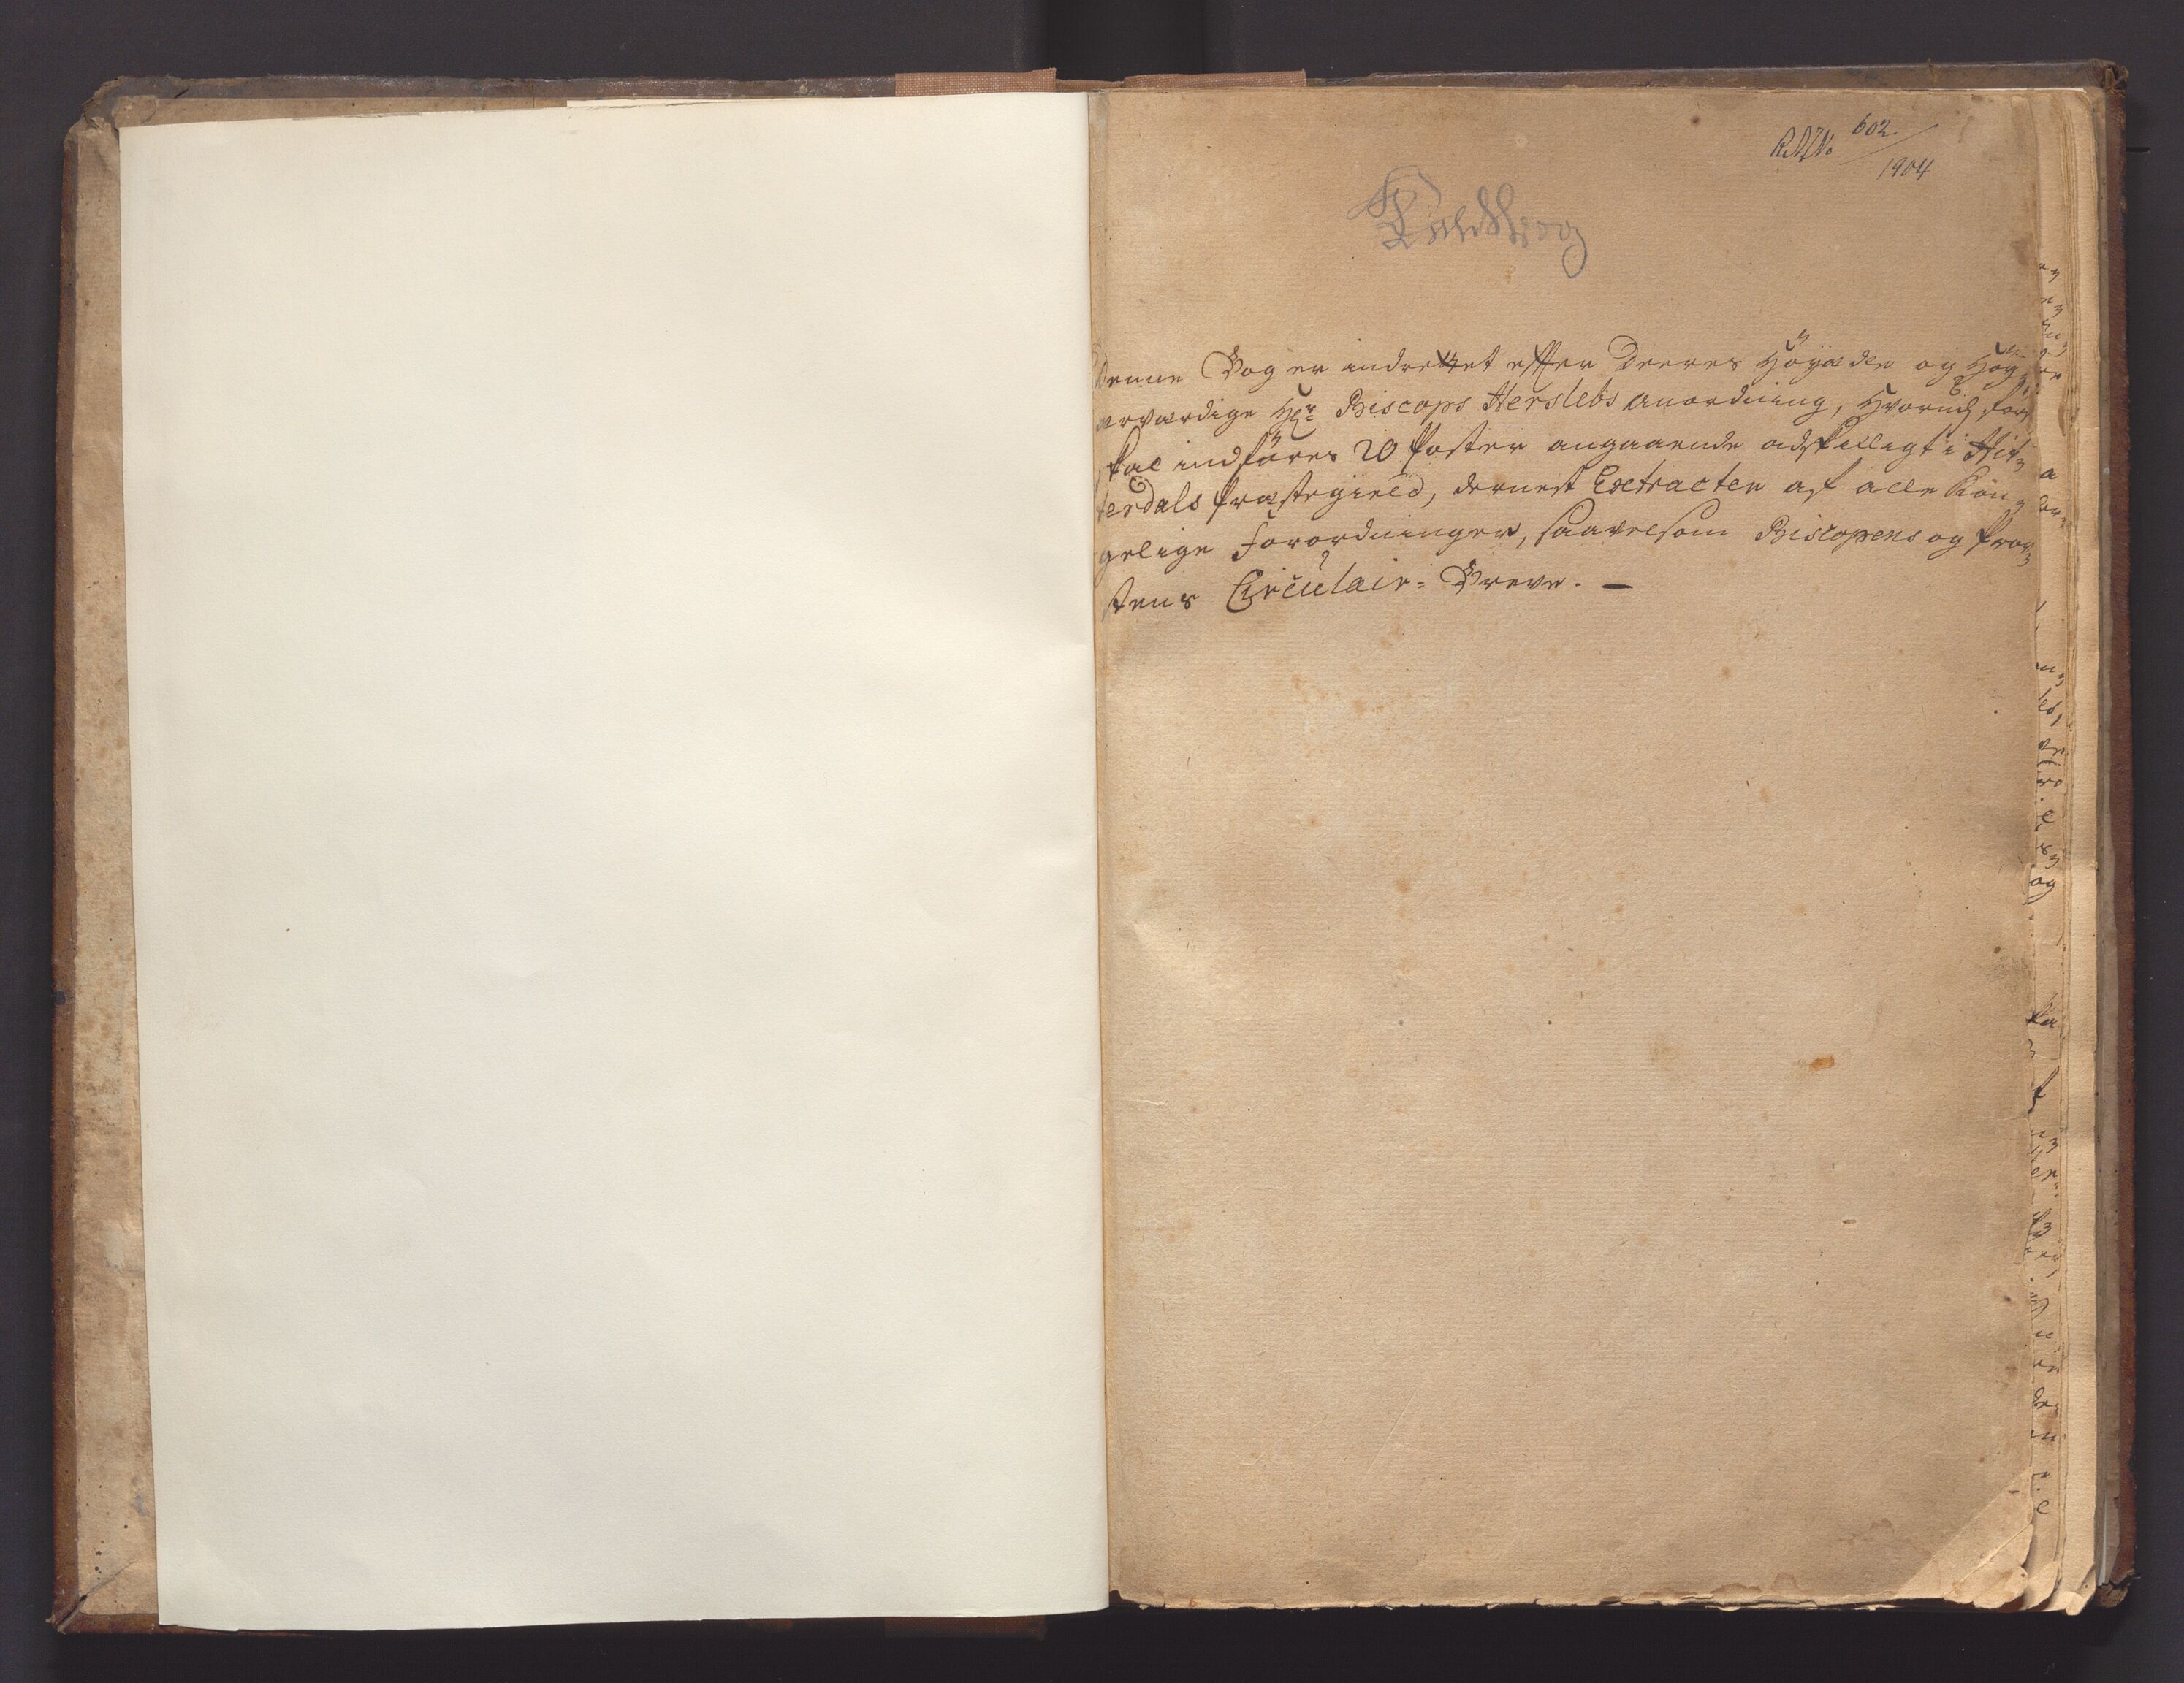 RA J No 602/1904
Kaldsbog
Denne Bog er indrettet efter Deeres Höyædle og Höy-
ærværdige Hr: Biscops Herslebs anordning, Hvorudj først
skal indföres 20 Poster angaaende adskilligt i Hit-
terdals Præstegield, dernest Extracten af alle Kön-
gelige Forordninger, saavelsom Biscopens og Prov-
stens Circulair- Breve. —